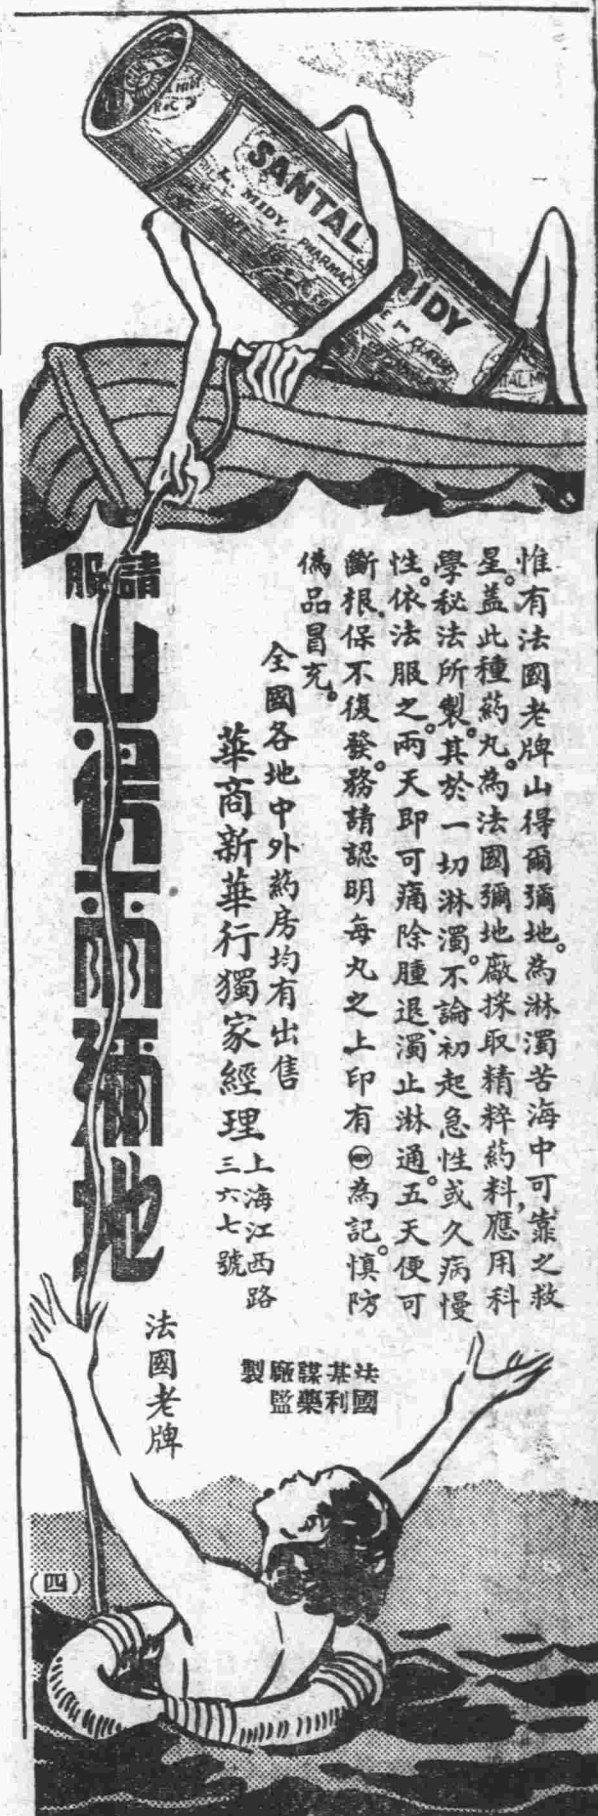 SANTAL MIDY
L. MIDY, PHARMAC
惟有法國老牌山得爾彌地。為淋濁苦海中可靠之救
星。蓋此種葯丸。為法國彌地廠採取精粹葯料，應用科
學秘法所製。其於一切淋濁。不論初起急性或久病慢
性。依法服之。兩天即可痛除腫退、濁止淋通。五天便可
斷根。保不復發。務請認明每丸之上印有MIDY為記。慎防
偽品冒充。
全國各地中外葯房均有出售
華商新華行獨家經理
上海江西路
三六七號
請服
山得爾彌地
法國老牌
法國
基利
謀藥
廠監
製
(四)